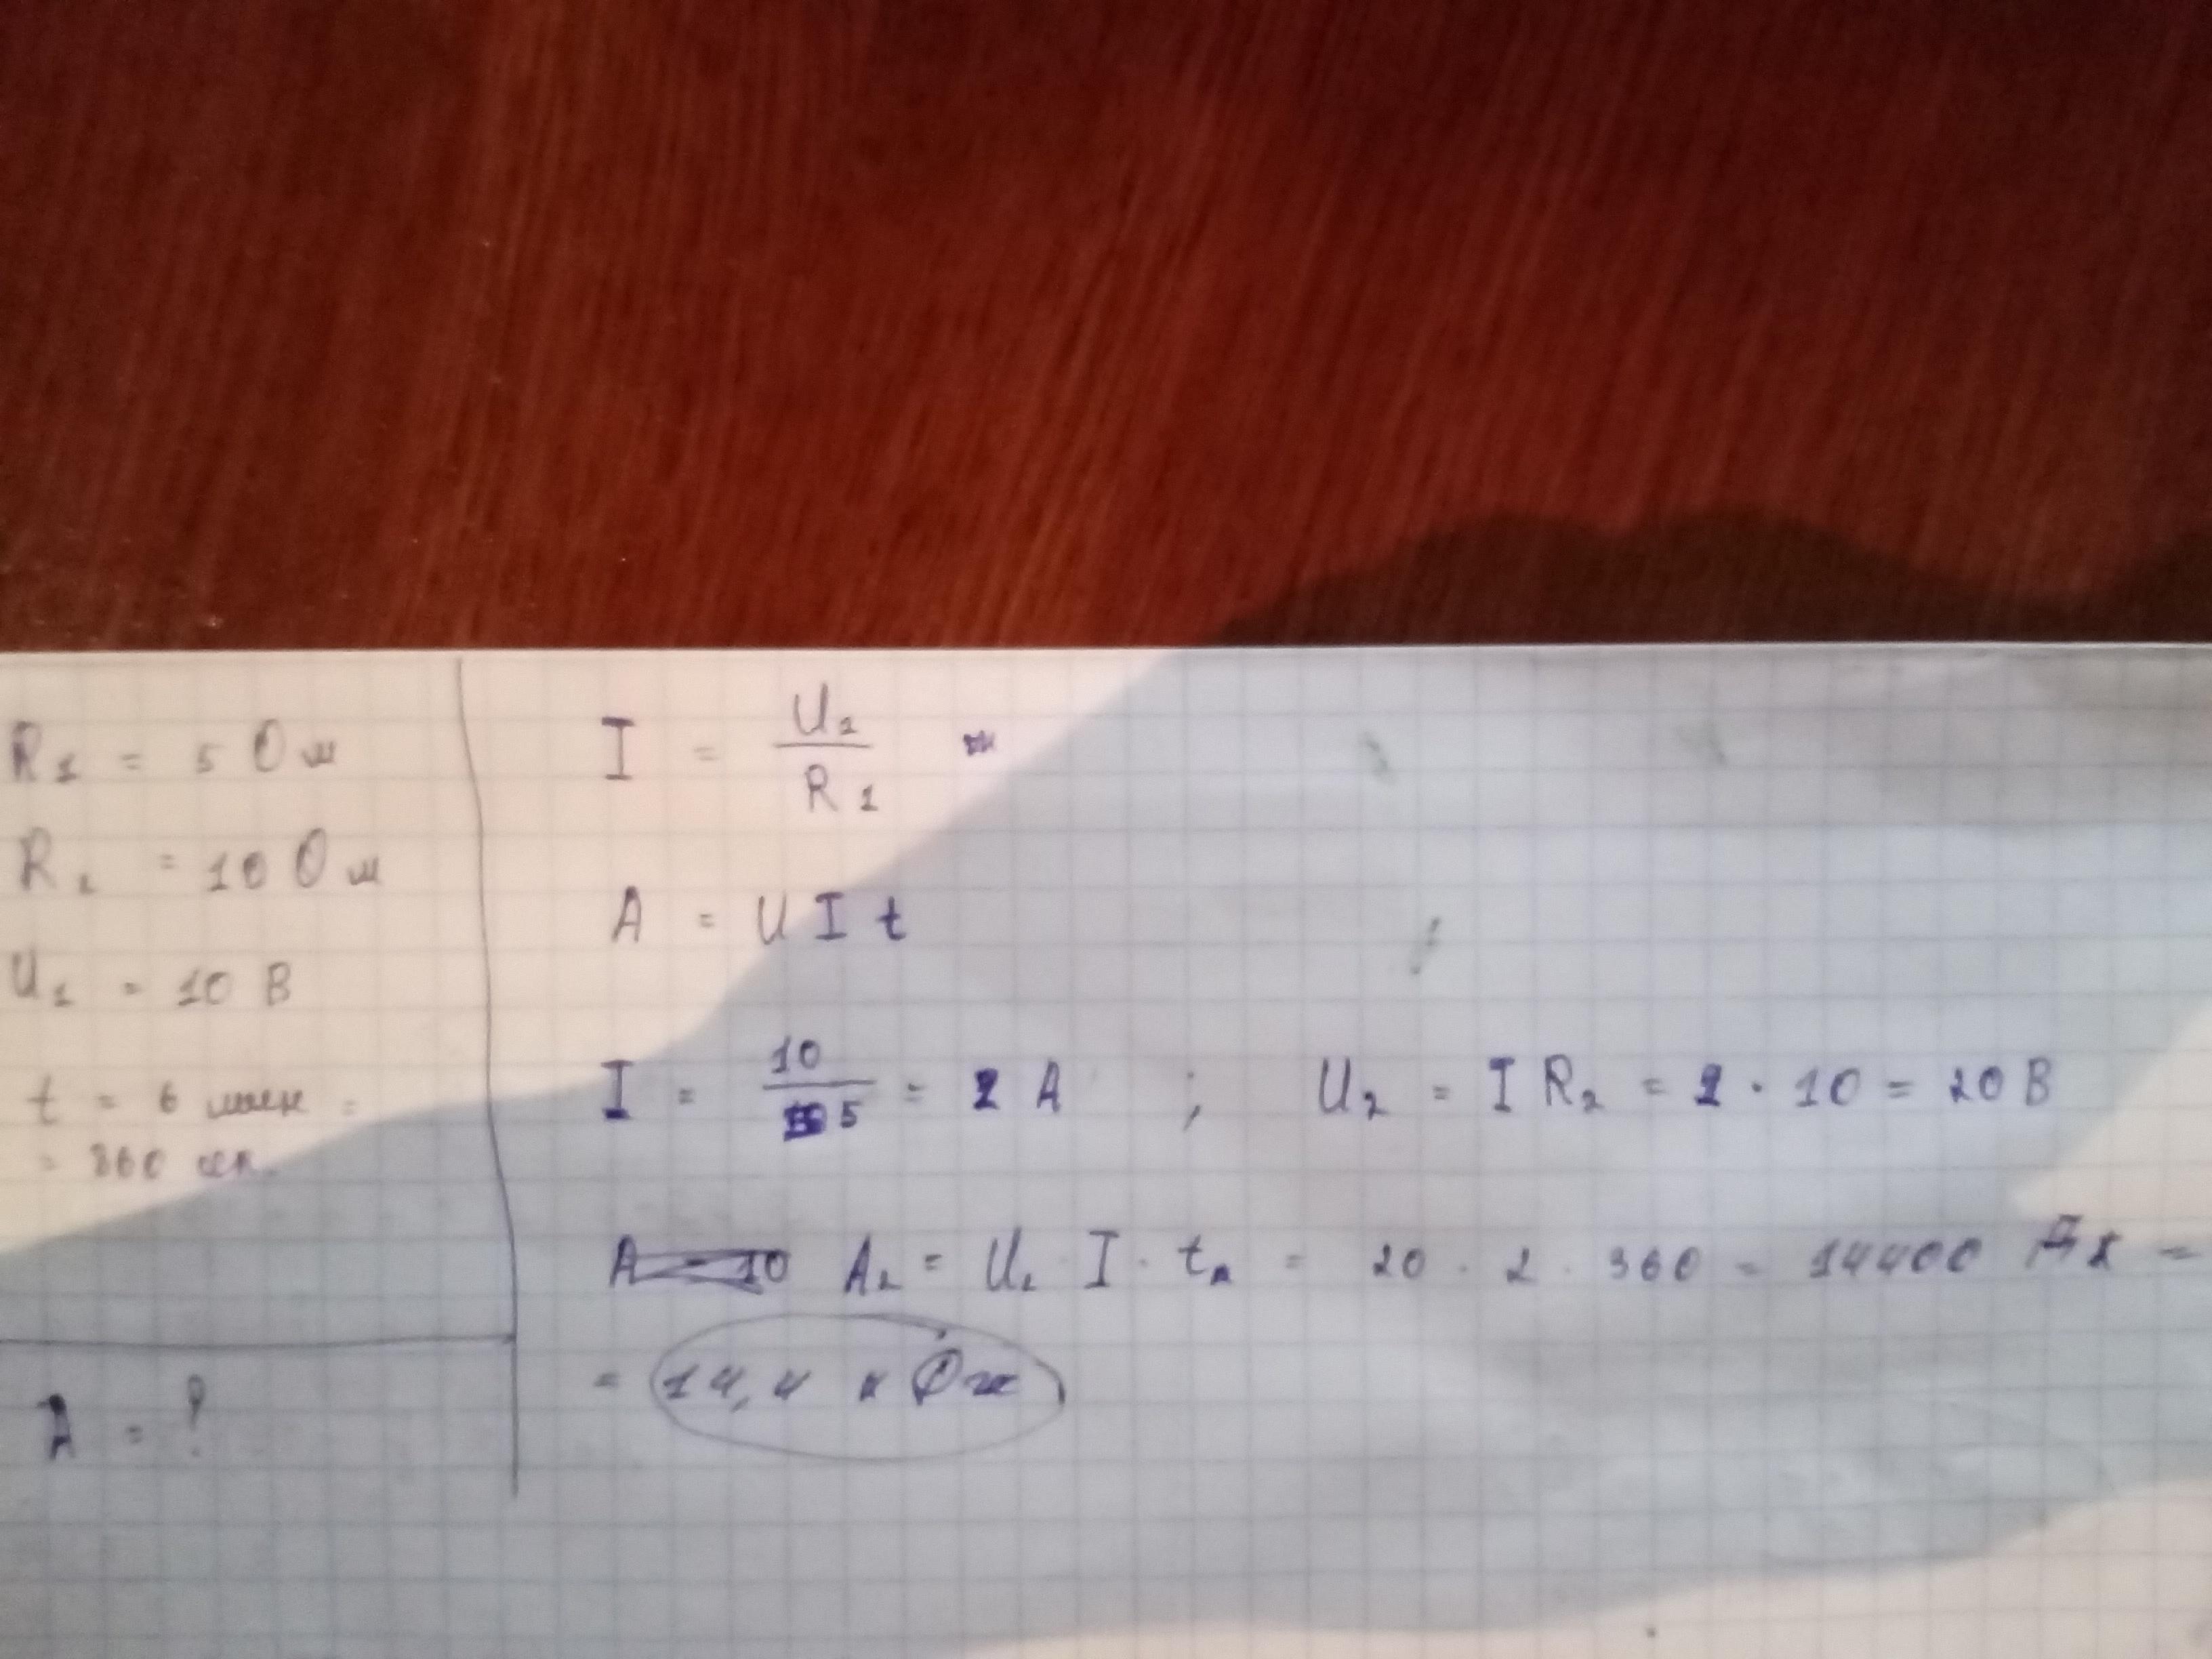 R1 = 5 Ом
R2 = 10 Ом
U1 = 10 В
t = 6 мин =
= 360 сек.
A = ?
I = U1/R1 =
A = U I t
I = 10/5 = 2 А ; U2 = I R2 = 2 · 10 = 20 В
A2 = U2 · I · t = 20 · 2 · 360 = 14400 Дж =
= 14,4 кДж